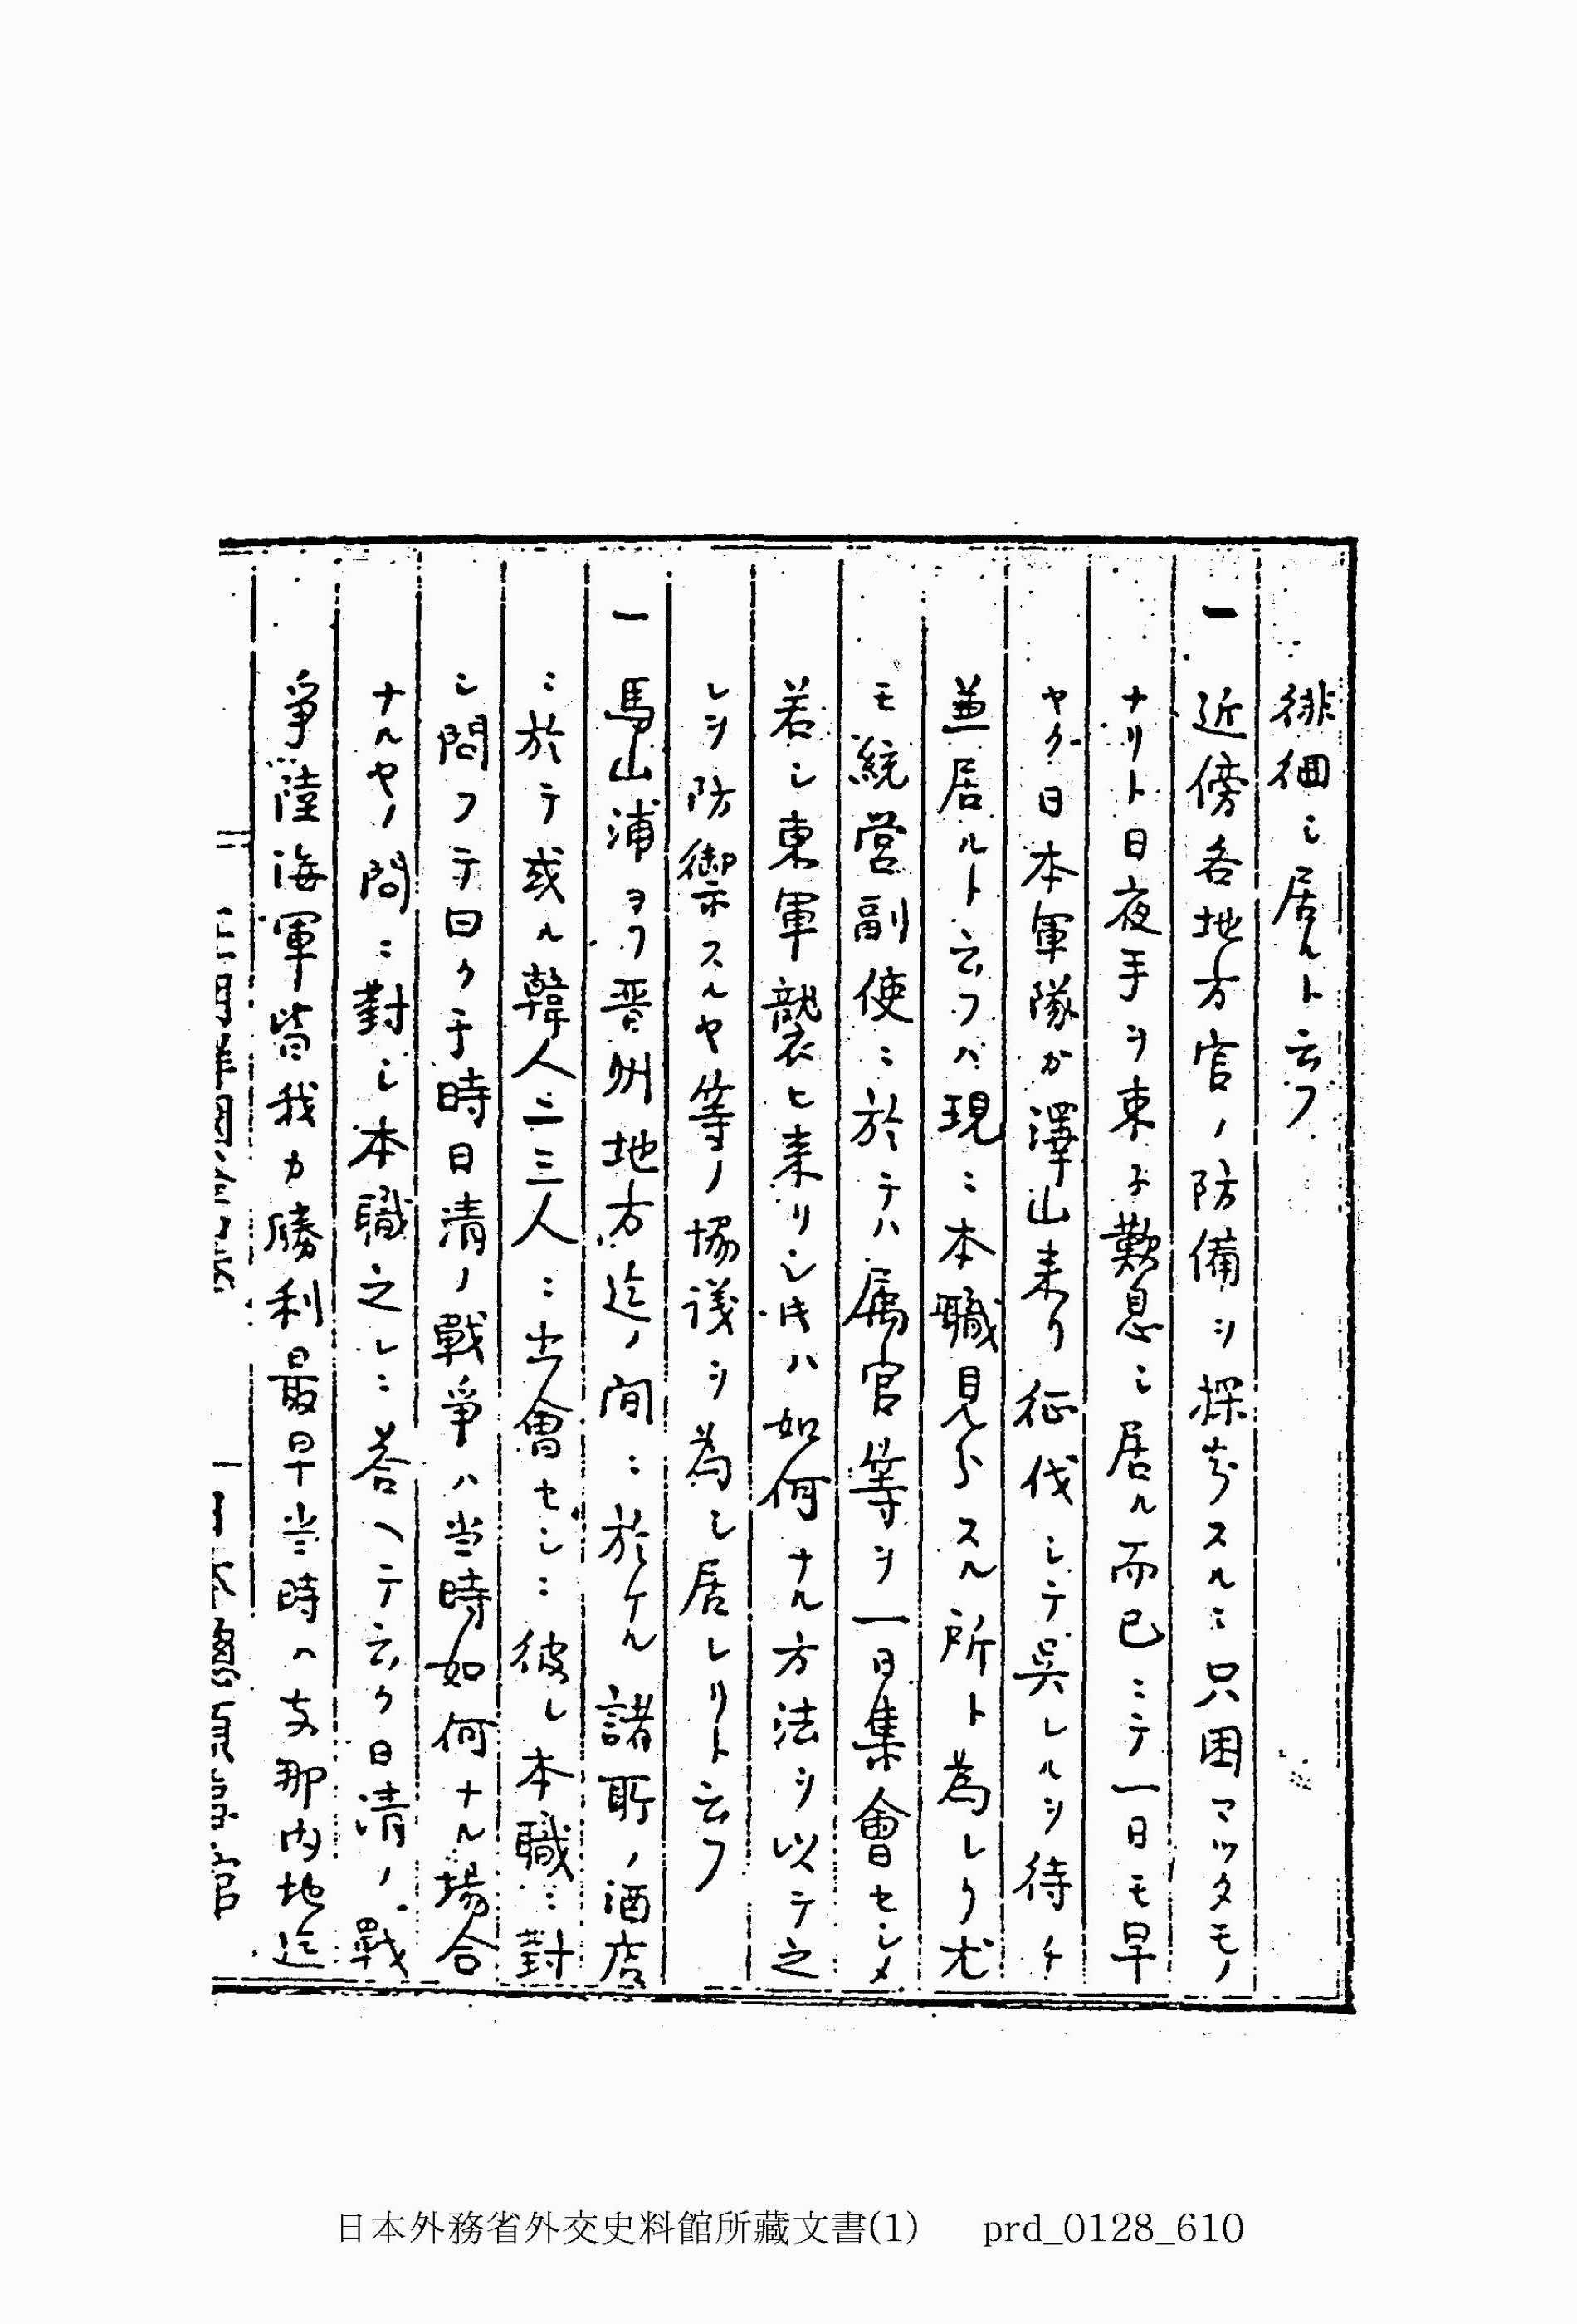 徘徊シ居ルト云フ
一 近傍各地方官ノ防備ヲ探考スルニ只困マツタモノ
ナリト日夜手ヲ束子歎息シ居ル而已ニテ一日モ早
ヤク日本軍隊カ澤山来リ征伐シテ呉レルヲ待チ
兼居ルト云フハ現ニ本職見分スル所ト為レリ尤
モ統営副使ニ於テハ属官等ヲ一日集會セシメ
若シ東軍襲ヒ来リシ𪜈ハ如何ナル方法ヲ以テ之
レヲ防禦スルヤ等ノ協議ヲ為シ居レリト云フ
一 馬山浦ヨリ晋州地方迄ノ間ニ於ケル諸所ノ酒店
ニ於テ或ル韓人二三人ニ出會セシニ彼レ本職ニ對
シ問フテ曰ク于時日清ノ戰爭ハ当時如何ナル場合
ナルヤノ問ニ對シ本職之レニ荅ヘテ云ク日清ノ戰
爭陸海軍皆我カ勝利最早当時ハ支那内地迄
日本外務省外交史料館所藏文書(1) prd_0128_610